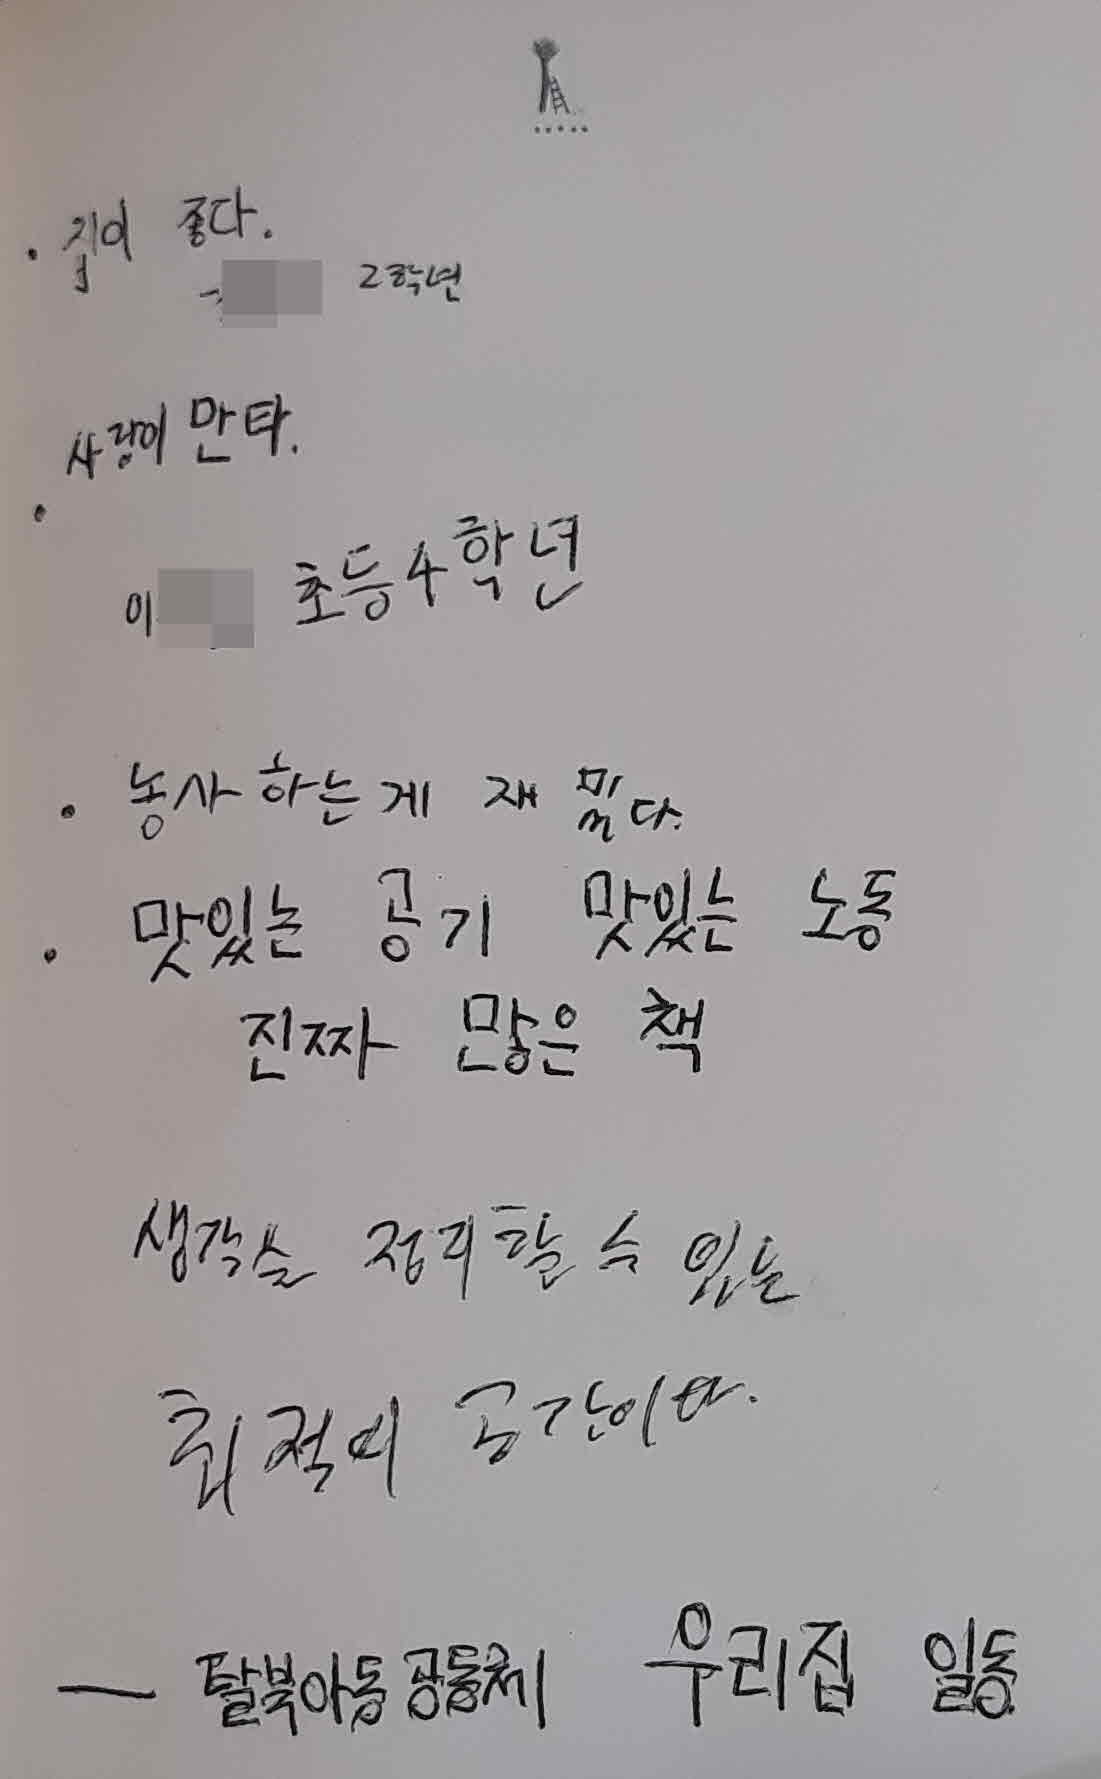 · 집이 좋다.
- 2학년
사랑이 만타.
·
이 초등4학년
· 농사하는게 재밌다.
· 맛있는 공기 맛있는 노동
진짜 많은 책
생각을 정리할 수 있는
최적의 공간이다.
— 탈북아동공동체 우리집 일동